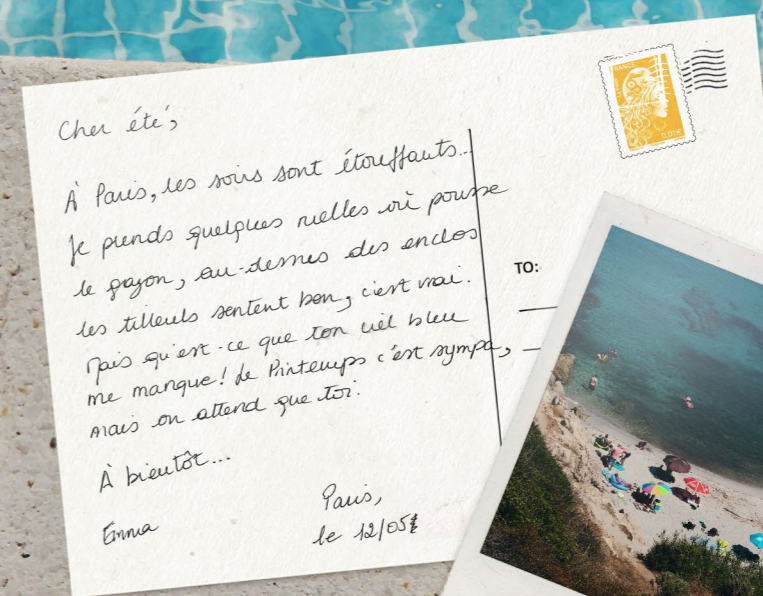 Cher été,
À Paris, les soirs sont étouffants...
Je prends quelques ruelles où pousse
le gazon, au-dessus des enclos
les tilleuls sentent bon, c'est vrai.
Mais qu'est-ce que ton ciel bleu
me manque! Le Printemps c'est sympa,
mais on attend que toi.
À bientôt...
Emma
Paris,
le 12/05
FRANCE
0,01€
TO: